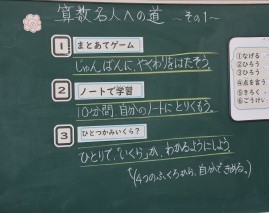 算数名人への道 〜その1〜
1 まとあてゲーム
じゅんばんに、やくわりをはたそう。
2 ノートで学習
10分間、自分のノートにとりくもう。
3 ひとつかみいくら?
ひとりで、「いくら」か、わかるようにしよう
(4つのふくろから、自分できめる。)
①なげる
②ひろう
③ひろう
④点を言う
⑤きろく
⑥ごうけい